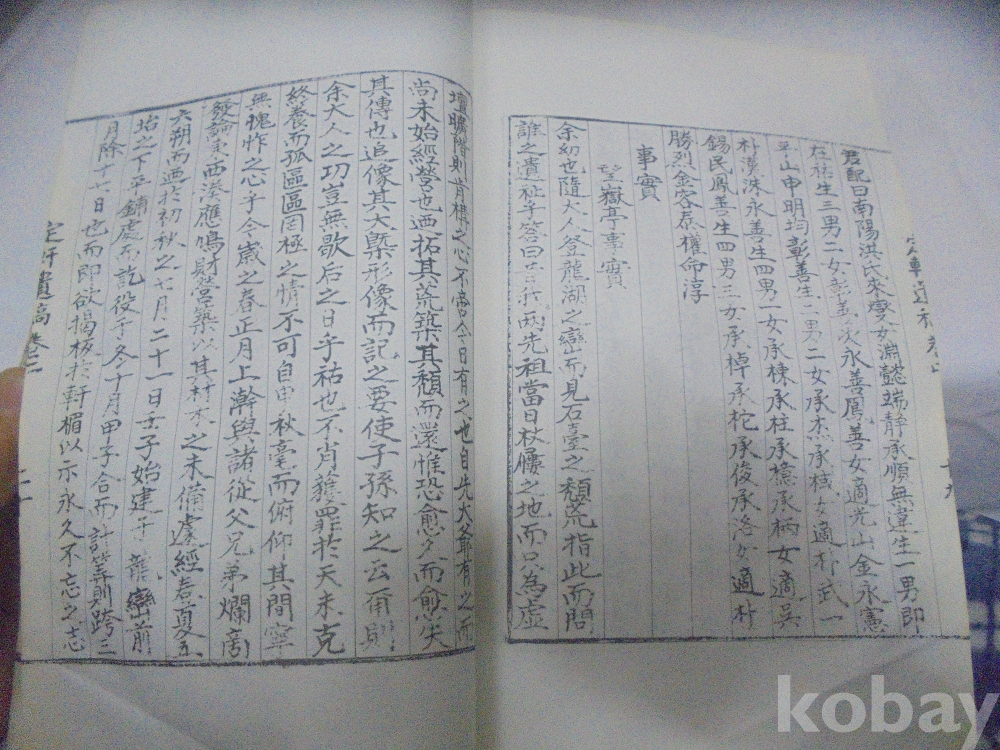 君配曰南陽洪氏來燮女淵懿端靜承順無違生一男即
在祐生三男二女彰善永善鳳善女適光山金永憲
平山申明均彰善生二男二女承杰承棫女適朴武一
朴漢洙永善生四男一女承棟承柱承檍承柄女適吳
錫民鳳善生四男三女承棹承柁承俊承洛女適朴
勝烈金容泰權命淳
事實
望嶽亭事實
余幼也隨大人登龍湖之巒而見石臺之頹荒指此而問
誰之遺祉予答曰吾我两先祖當日杖屨之地而只為虛
壇曠階則肯構之心不啻今日有之也自先大爺有之而
尚未始經營也迺拓其荒築其頹而還惟恐愈久而愈失
其傳也追像其大槩形像而記之要使子孫知之云爾則
余大人之功豈無歇后之日乎祜也不肖雜罪於天未克
終養而孤區區罔極之情不可自申秋毫而俯仰其間寧
無愧怍之心乎今歲之春正月上澣與諸從父兄弟爛商
發論東西湊應鳩財營築以其材木之未備處經春夏五
六朔而迺於初秋之七月二十一日壬子始建于龍巒前
坮之下平鋪處而訖役于冬十月甲子合而計算則跨三
月除十七日也而即欲揭板於軒楣以示永久不忘之志
定軒遺稿 卷二
kobay